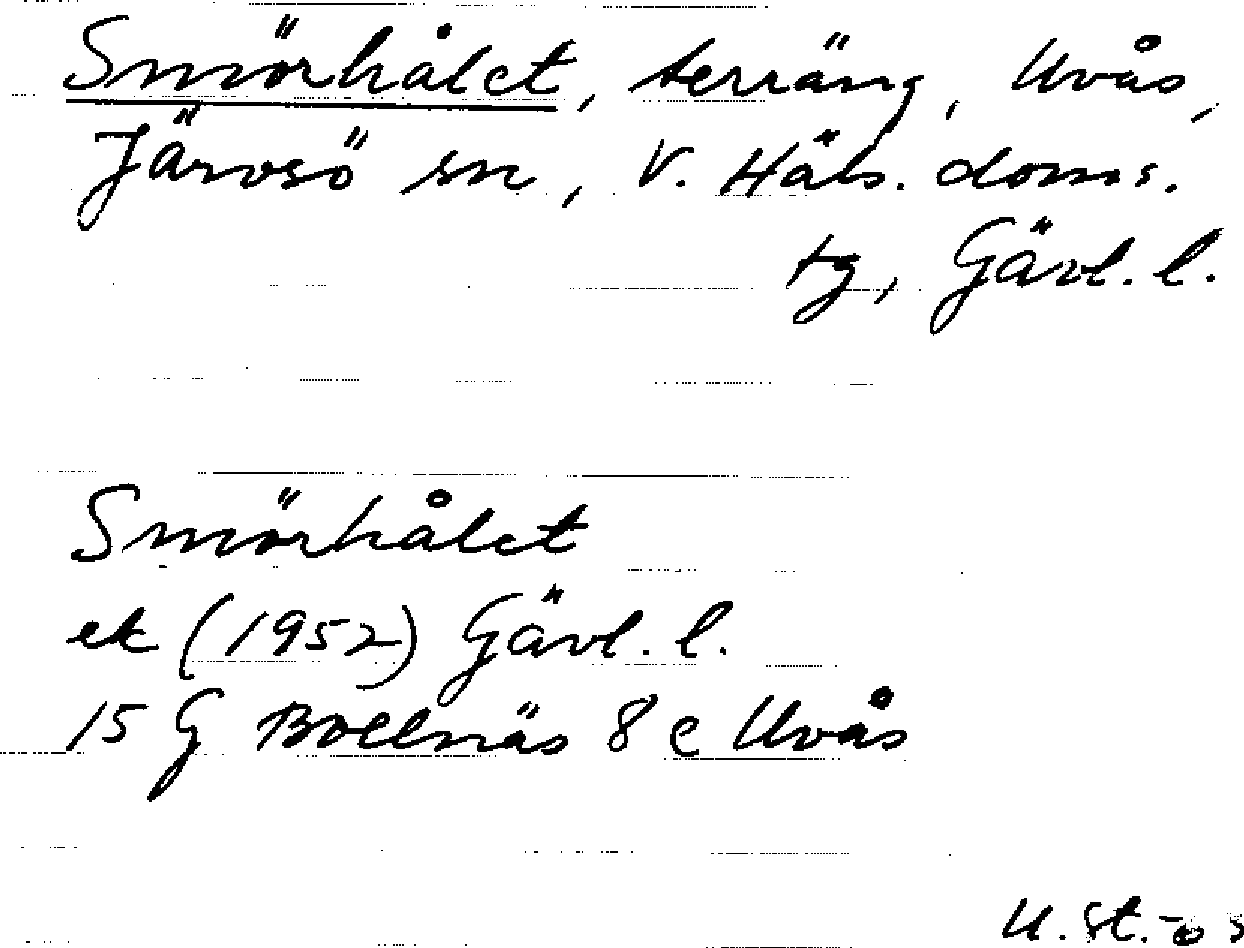 Smörhålet, terräng, Uvås,
Järvsö sn, V. Häls. doms.
tg, Gävl. l.
Smörhålet
ek (1952) Gävl. l.
15 G Bollnäs 8 e Uvås
U. St.